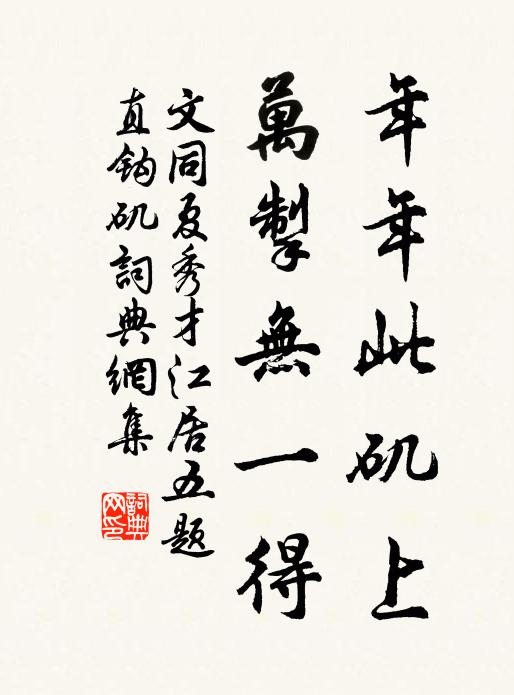 年年此矶上
萬掣無一得
文同夏秀才江居五题
直钩矶詞典網集
詞典网印